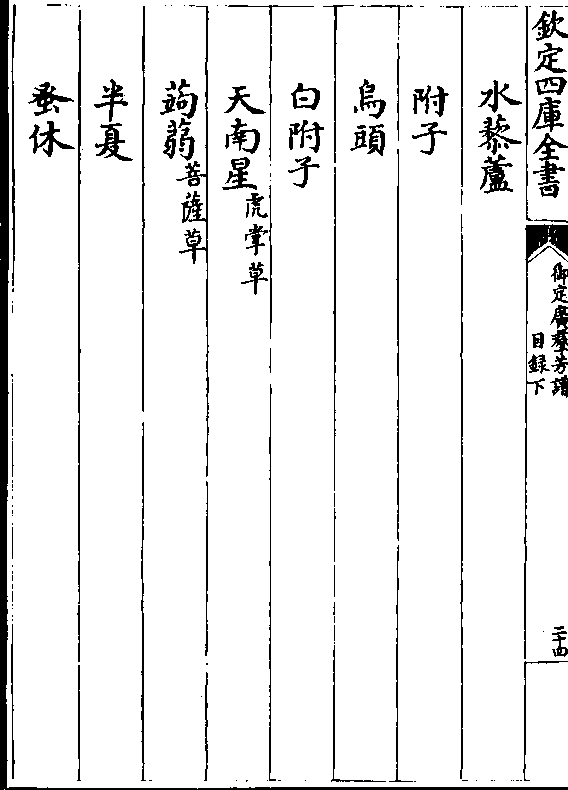 欽定四庫全書
御定廣羣芳譜
目録下
二十四
水藜蘆
附子
烏頭
白附子
天南星虎掌草
蒟蒻菩薩草
半夏
蚤休